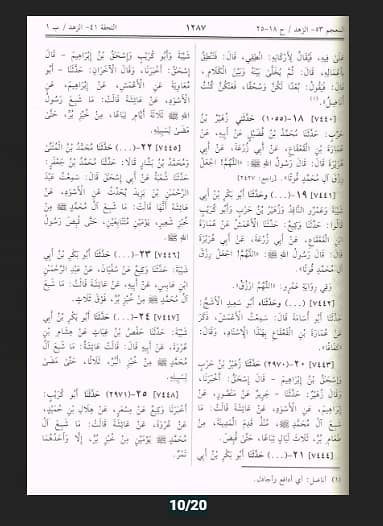 المعجم ٥٣- الزهد / ح ١٨-٢٥
١٢٨٧
التحفة ٤١- الزهد / ب ١
عَلَىٰ فِيهِ، فَيُقَالُ لِأَرْكَانِهِ: انْطِقِي، قَالَ: فَتَنْطِقُ
بِأَعْمَالِهِ، قَالَ: ثُمَّ يُخَلَّىٰ بَيْنَهُ وَبَيْنَ الْكَلَامِ،
قَالَ فَيَقُولُ: بُعْدًا لَكُنَّ وَسُحْقًا، فَعَنْكُنَّ كُنْتُ
أُنَاضِلُ».(١)
[٧٤٤٠] ١٨-(١٠٥٥) حَدَّثَنِي زُهَيْرُ بْنُ
حَرْبٍ: حَدَّثَنَا مُحَمَّدُ بْنُ فُضَيْلٍ عَنْ أَبِيهِ، عَنْ
عُمَارَةَ بْنِ الْقَعْقَاعِ، عَنْ أَبِي زُرْعَةَ، عَنْ أَبِي
هُرَيْرَةَ قَالَ: قَالَ رَسُولُ اللهِ ﷺ: «اللّٰهُمَّ! اجْعَلْ
رِزْقَ آلِ مُحَمَّدٍ قُوتًا». [راجع: ٢٤٢٧]
[٧٤٤١] ١٩-(...) وحَدَّثَنَا أَبُو بَكْرِ بْنُ أَبِي
شَيْبَةَ وَعَمْرٌو النَّاقِدُ وَزُهَيْرُ بْنُ حَرْبٍ وَأَبُو كُرَيْبٍ
قَالُوا: حَدَّثَنَا وَكِيعٌ: حَدَّثَنَا الْأَعْمَشُ عَنْ عُمَارَةَ
ابْنِ الْقَعْقَاعِ، عَنْ أَبِي زُرْعَةَ، عَنْ أَبِي هُرَيْرَةَ
قَالَ: قَالَ رَسُولُ اللهِ ﷺ: «اللّٰهُمَّ! اجْعَلْ رِزْقَ
آلِ مُحَمَّدٍ قُوتًا».
وَفِي رِوَايَةِ عَمْرٍو: «اللّٰهُمَّ! ارْزُقْ».
[٧٤٤٢] (...) وحَدَّثَنَاه أَبُو سَعِيدٍ الْأَشَجُّ:
حَدَّثَنَا أَبُو أُسَامَةَ قَالَ: سَمِعْتُ الْأَعْمَشَ، ذَكَرَ
عَنْ عُمَارَةَ بْنِ الْقَعْقَاعِ بِهٰذَا الْإِسْنَادِ، وَقَالَ:
«كَفَافًا».
[٧٤٤٣] ٢٠-(٢٩٧٠) حَدَّثَنَا زُهَيْرُ بْنُ حَرْبٍ
وَإِسْحٰقُ بْنُ إِبْرَاهِيمَ - قَالَ إِسْحٰقُ: أَخْبَرَنَا،
وَقَالَ زُهَيْرٌ: حَدَّثَنَا - جَرِيرٌ عَنْ مَنْصُورٍ، عَنْ
إِبْرَاهِيمَ، عَنِ الْأَسْوَدِ، عَنْ عَائِشَةَ قَالَتْ: مَا
شَبِعَ آلُ مُحَمَّدٍ ﷺ، مُنْذُ قَدِمَ الْمَدِينَةَ، مِنْ
طَعَامِ بُرٍّ، ثَلَاثَ لَيَالٍ تِبَاعًا، حَتَّىٰ قُبِضَ.
[٧٤٤٤] ٢١-(...) حَدَّثَنَا أَبُو بَكْرِ بْنُ أَبِي
شَيْبَةَ وَأَبُو كُرَيْبٍ وَإِسْحٰقُ بْنُ إِبْرَاهِيمَ - قَالَ
إِسْحٰقُ: أَخْبَرَنَا، وَقَالَ الْآخَرَانِ: حَدَّثَنَا - أَبُو
مُعَاوِيَةَ عَنِ الْأَعْمَشِ، عَنْ إِبْرَاهِيمَ، عَنِ
الْأَسْوَدِ، عَنْ عَائِشَةَ قَالَتْ: مَا شَبِعَ رَسُولُ
اللهِ ﷺ ثَلَاثَةَ أَيَّامٍ تِبَاعًا، مِنْ خُبْزِ بُرٍّ، حَتَّىٰ
مَضَىٰ لِسَبِيلِهِ.
[٧٤٤٥] ٢٢-(...) حَدَّثَنَا مُحَمَّدُ بْنُ الْمُثَنَّىٰ
وَمُحَمَّدُ بْنُ بَشَّارٍ قَالَا: حَدَّثَنَا مُحَمَّدُ بْنُ جَعْفَرٍ:
حَدَّثَنَا شُعْبَةُ عَنْ أَبِي إِسْحٰقَ قَالَ: سَمِعْتُ عَبْدَ
الرَّحْمٰنِ بْنَ يَزِيدَ يُحَدِّثُ عَنِ الْأَسْوَدِ، عَنْ
عَائِشَةَ أَنَّهَا قَالَتْ: مَا شَبِعَ آلُ مُحَمَّدٍ ﷺ مِنْ
خُبْزِ شَعِيرٍ، يَوْمَيْنِ مُتَتَابِعَيْنِ، حَتَّىٰ قُبِضَ رَسُولُ
اللهِ ﷺ.
[٧٤٤٦] ٢٣-(...) حَدَّثَنَا أَبُو بَكْرِ بْنُ أَبِي
شَيْبَةَ: حَدَّثَنَا وَكِيعٌ عَنْ سُفْيَانَ، عَنْ عَبْدِ الرَّحْمٰنِ
ابْنِ عَابِسٍ، عَنْ أَبِيهِ، عَنْ عَائِشَةَ قَالَتْ: مَا شَبِعَ
آلُ مُحَمَّدٍ ﷺ مِنْ خُبْزِ بُرٍّ، فَوْقَ ثَلَاثٍ.
[٧٤٤٧] ٢٤-(...) حَدَّثَنَا أَبُو بَكْرِ بْنُ أَبِي
شَيْبَةَ: حَدَّثَنَا حَفْصُ بْنُ غِيَاثٍ عَنْ هِشَامِ بْنِ
عُرْوَةَ، عَنْ أَبِيهِ قَالَ: قَالَتْ عَائِشَةُ: مَا شَبِعَ آلُ
مُحَمَّدٍ ﷺ مِنْ خُبْزِ الْبُرِّ، ثَلَاثًا، حَتَّىٰ مَضَىٰ
لِسَبِيلِهِ.
[٧٤٤٨] ٢٥-(٢٩٧١) حَدَّثَنَا أَبُو كُرَيْبٍ:
أَخْبَرَنَا وَكِيعٌ عَنْ مِسْعَرٍ، عَنْ هِلَالِ بْنِ حُمَيْدٍ،
عَنْ عُرْوَةَ، عَنْ عَائِشَةَ قَالَتْ: مَا شَبِعَ آلُ
مُحَمَّدٍ ﷺ يَوْمَيْنِ مِنْ خُبْزِ بُرٍّ، إِلَّا وَأَحَدُهُمَا
تَمْرٌ.
(١) أناضل: أي أدافع وأجادل.
10/20